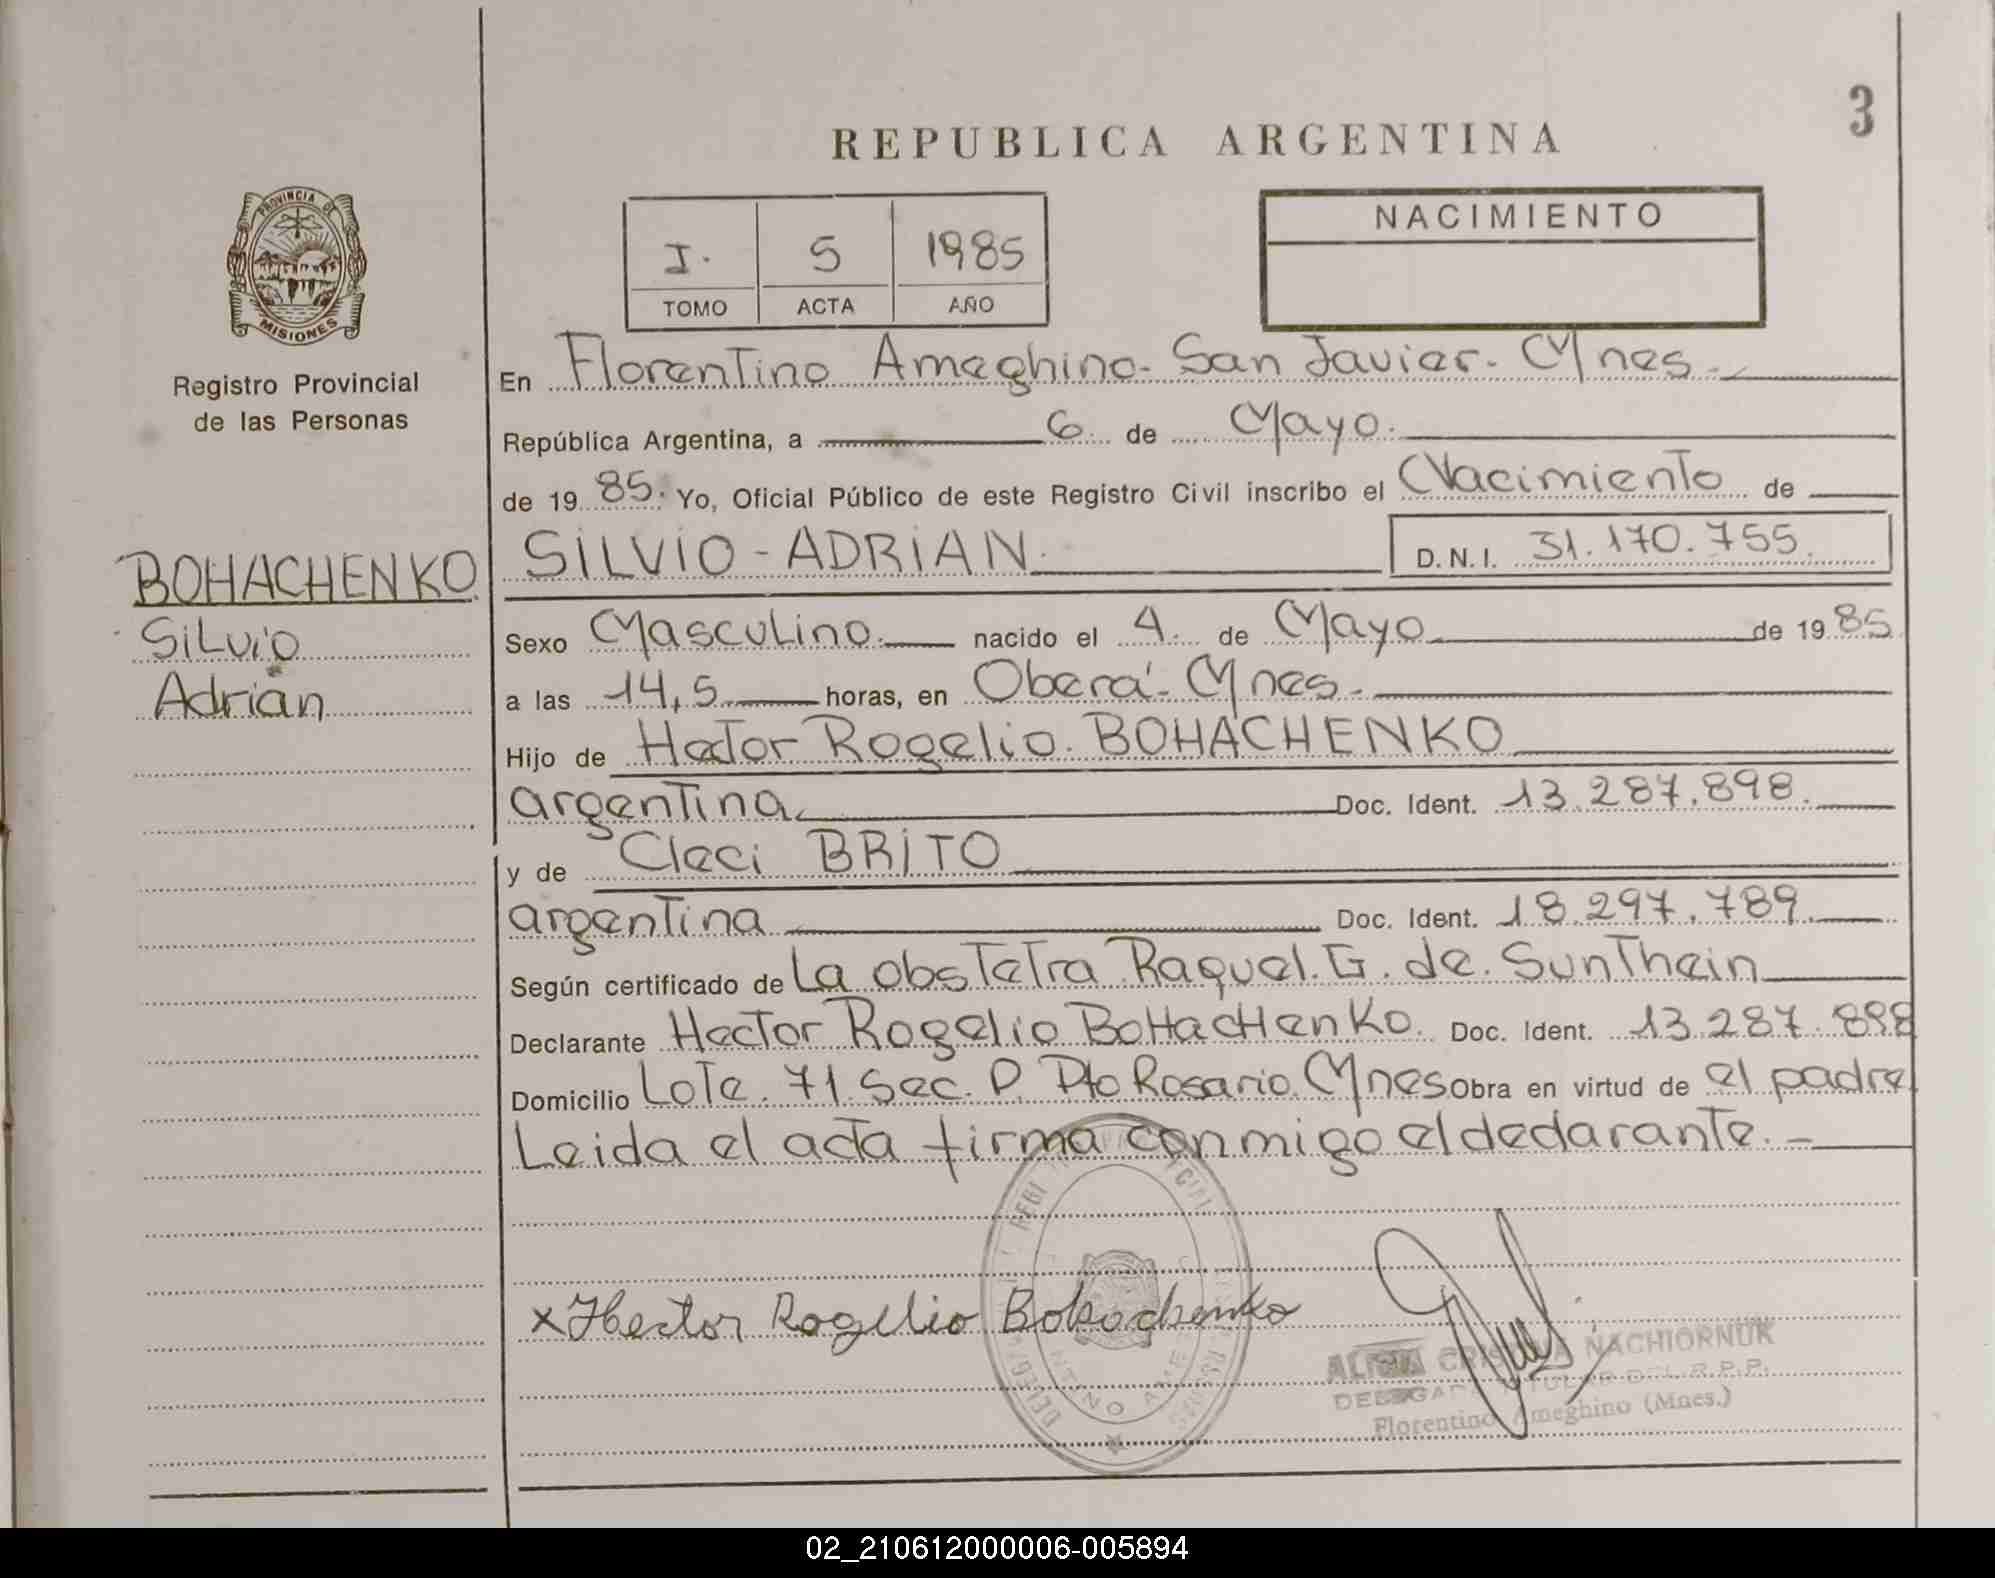 3
REPUBLICA ARGENTINA
PROVINCIA DE
MISIONES
Registro Provincial
de las Personas
I. 5 1985
TOMO ACTA AÑO
NACIMIENTO
En Florentino Ameghino - San Javier - Mnes.
República Argentina, a 6 de Mayo.
de 19 85. Yo, Oficial Público de este Registro Civil inscribo el Nacimiento de
BOHACHENKO
Silvio
Adrián
SILVIO - ADRIAN. D.N.I. 31.170.755.
Sexo Masculino. nacido el 4. de Mayo de 19 85
a las 14,5 horas, en Oberá - Mnes.
Hijo de Hector Rogelio. BOHACHENKO
argentina Doc. Ident. 13.287.898.
y de Cleci BRITO
argentina Doc. Ident. 18.297.789.
Según certificado de La obstetra Raquel. G. de Sunthein
Declarante Hector Rogelio BoHacHenKo. Doc. Ident. 13.287.898
Domicilio Lote. 71. Sec. P. Pto Rosario. Mnes. Obra en virtud de el padre
Leida el acta firma conmigo el declarante. -
x Hector Rogelio Bohochenko
CRISTINA ÑACHIORNUK
DELEGADA TITULAR DEL R.P.P.
Florentino Ameghino (Mnes.)
02_210612000006-005894